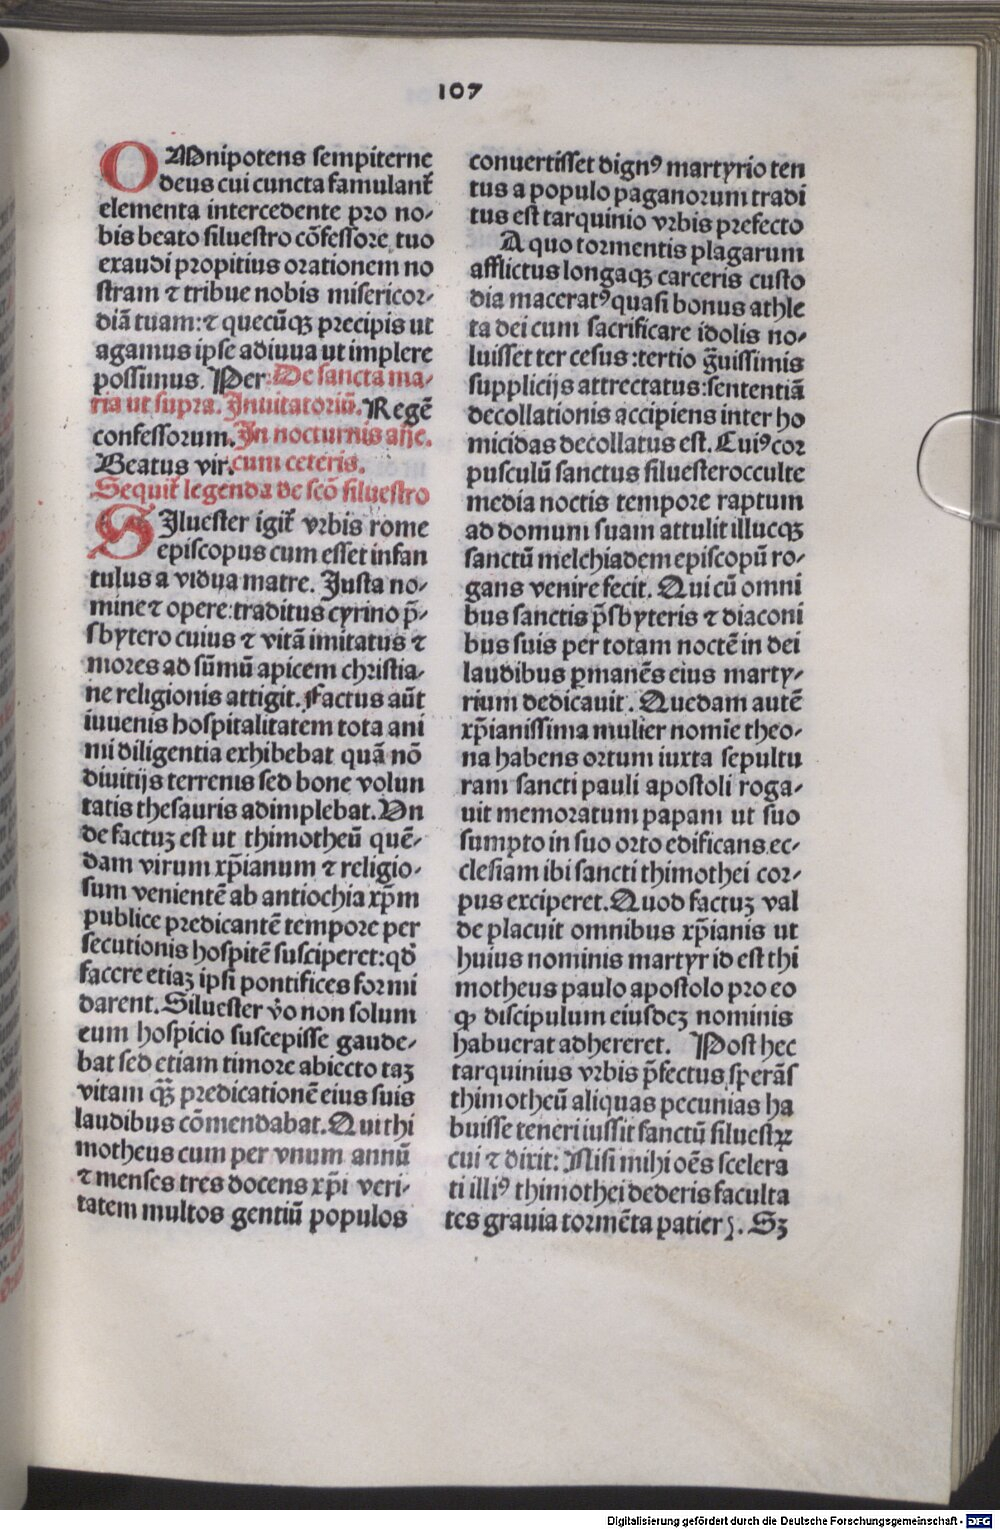 107
OMnipotens sempiterne
deus cui cuncta famulant᷑
elementa intercedente pro no-
bis beato siluestro cōfessore tuo
exaudi propitius orationem no
stram ⁊ tribue nobis misericor-
diā tuam:⁊ quecūqꝫ precipis ut
agamus ipse adiuua ut implere
possimus. Per. De sancta ma-
ria ut supra. Inuitatoriū. Regē
confessorum. In nocturnis añe.
Beatus vir. cum ceteris.
Sequit᷑ legenda de scō siluestro
SIluester igit᷑ vrbis rome
episcopus cum esset infan
tulus a vidua matre. Iusta no-
mine ⁊ opere:traditus cyrino p̄-
sbytero cuius ⁊ vitā imitatus ⁊
mores ad sūmū apicem christia-
ne religionis attigit. Factus aūt
iuuenis hospitalitatem tota ani
mi diligentia exhibebat quā nō
diuitijs terrenis sed bone volun
tatis thesauris adimplebat. Vn
de factuꝫ est ut thimotheū quē-
dam virum xp̄ianum ⁊ religio-
sum venientē ab antiochia xp̄m
publice predicantē tempore per
secutionis hospitē susciperet:qd̓
facere etiaꝫ ipsi pontifices formi
darent. Siluester v̓o non solum
eum hospicio suscepisse gaude-
bat sed etiam timore abiecto taꝫ
vitam qꝫ̄ predicationē eius suis
laudibus cōmendabat. Qui thi
motheus cum per vnum annū
⁊ menses tres docens xp̄i veri-
tatem multos gentiū populos
conuertisset dignꝰ martyrio ten
tus a populo paganorum tradi
tus est tarquinio vrbis prefecto
A quo tormentis plagarum
afflictus longaqꝫ carceris custo
dia maceratꝰ quasi bonus athle
ta dei cum sacrificare idolis no-
luisset ter cesus:tertio g̃uissimis
supplicijs attrectatus:sententiā
decollationis accipiens inter ho
micidas decollatus est. Cuiꝰ cor
pusculū sanctus siluester occulte
media noctis tempore raptum
ad domum suam attulit illucqꝫ
sanctū melchiadem episcopū ro-
gans venire fecit. Qui cū omni
bus sanctis p̄sbyteris ⁊ diaconi
bus suis per totam noctē in dei
laudibus ꝑmanēs eius marty-
rium dedicauit. Quedam autē
xp̄ianissima mulier nomīe theo-
na habens ortum iuxta sepultu
ram sancti pauli apostoli roga-
uit memoratum papam ut suo
sumpto in suo orto edificans ec-
clesiam ibi sancti thimothei cor-
pus exciperet. Quod factuꝫ val
de placuit omnibus xp̄ianis ut
huius nominis martyr id est thi
motheus paulo apostolo pro eo
ꝙ discipulum eiusdeꝫ nominis
habuerat adhereret. Post hec
tarquinius vrbis p̄fectus sperās
thimotheū aliquas pecunias ha
buisse teneri iussit sanctū siluestꝝ
cui ⁊ dixit: Nisi mihi oēs scelera
ti illiꝰ thimothei dederis faculta
tes grauia tormēta patierꝭ. Sꝫ
Digitalisierung gefördert durch die Deutsche Forschungsgemeinschaft - DFG